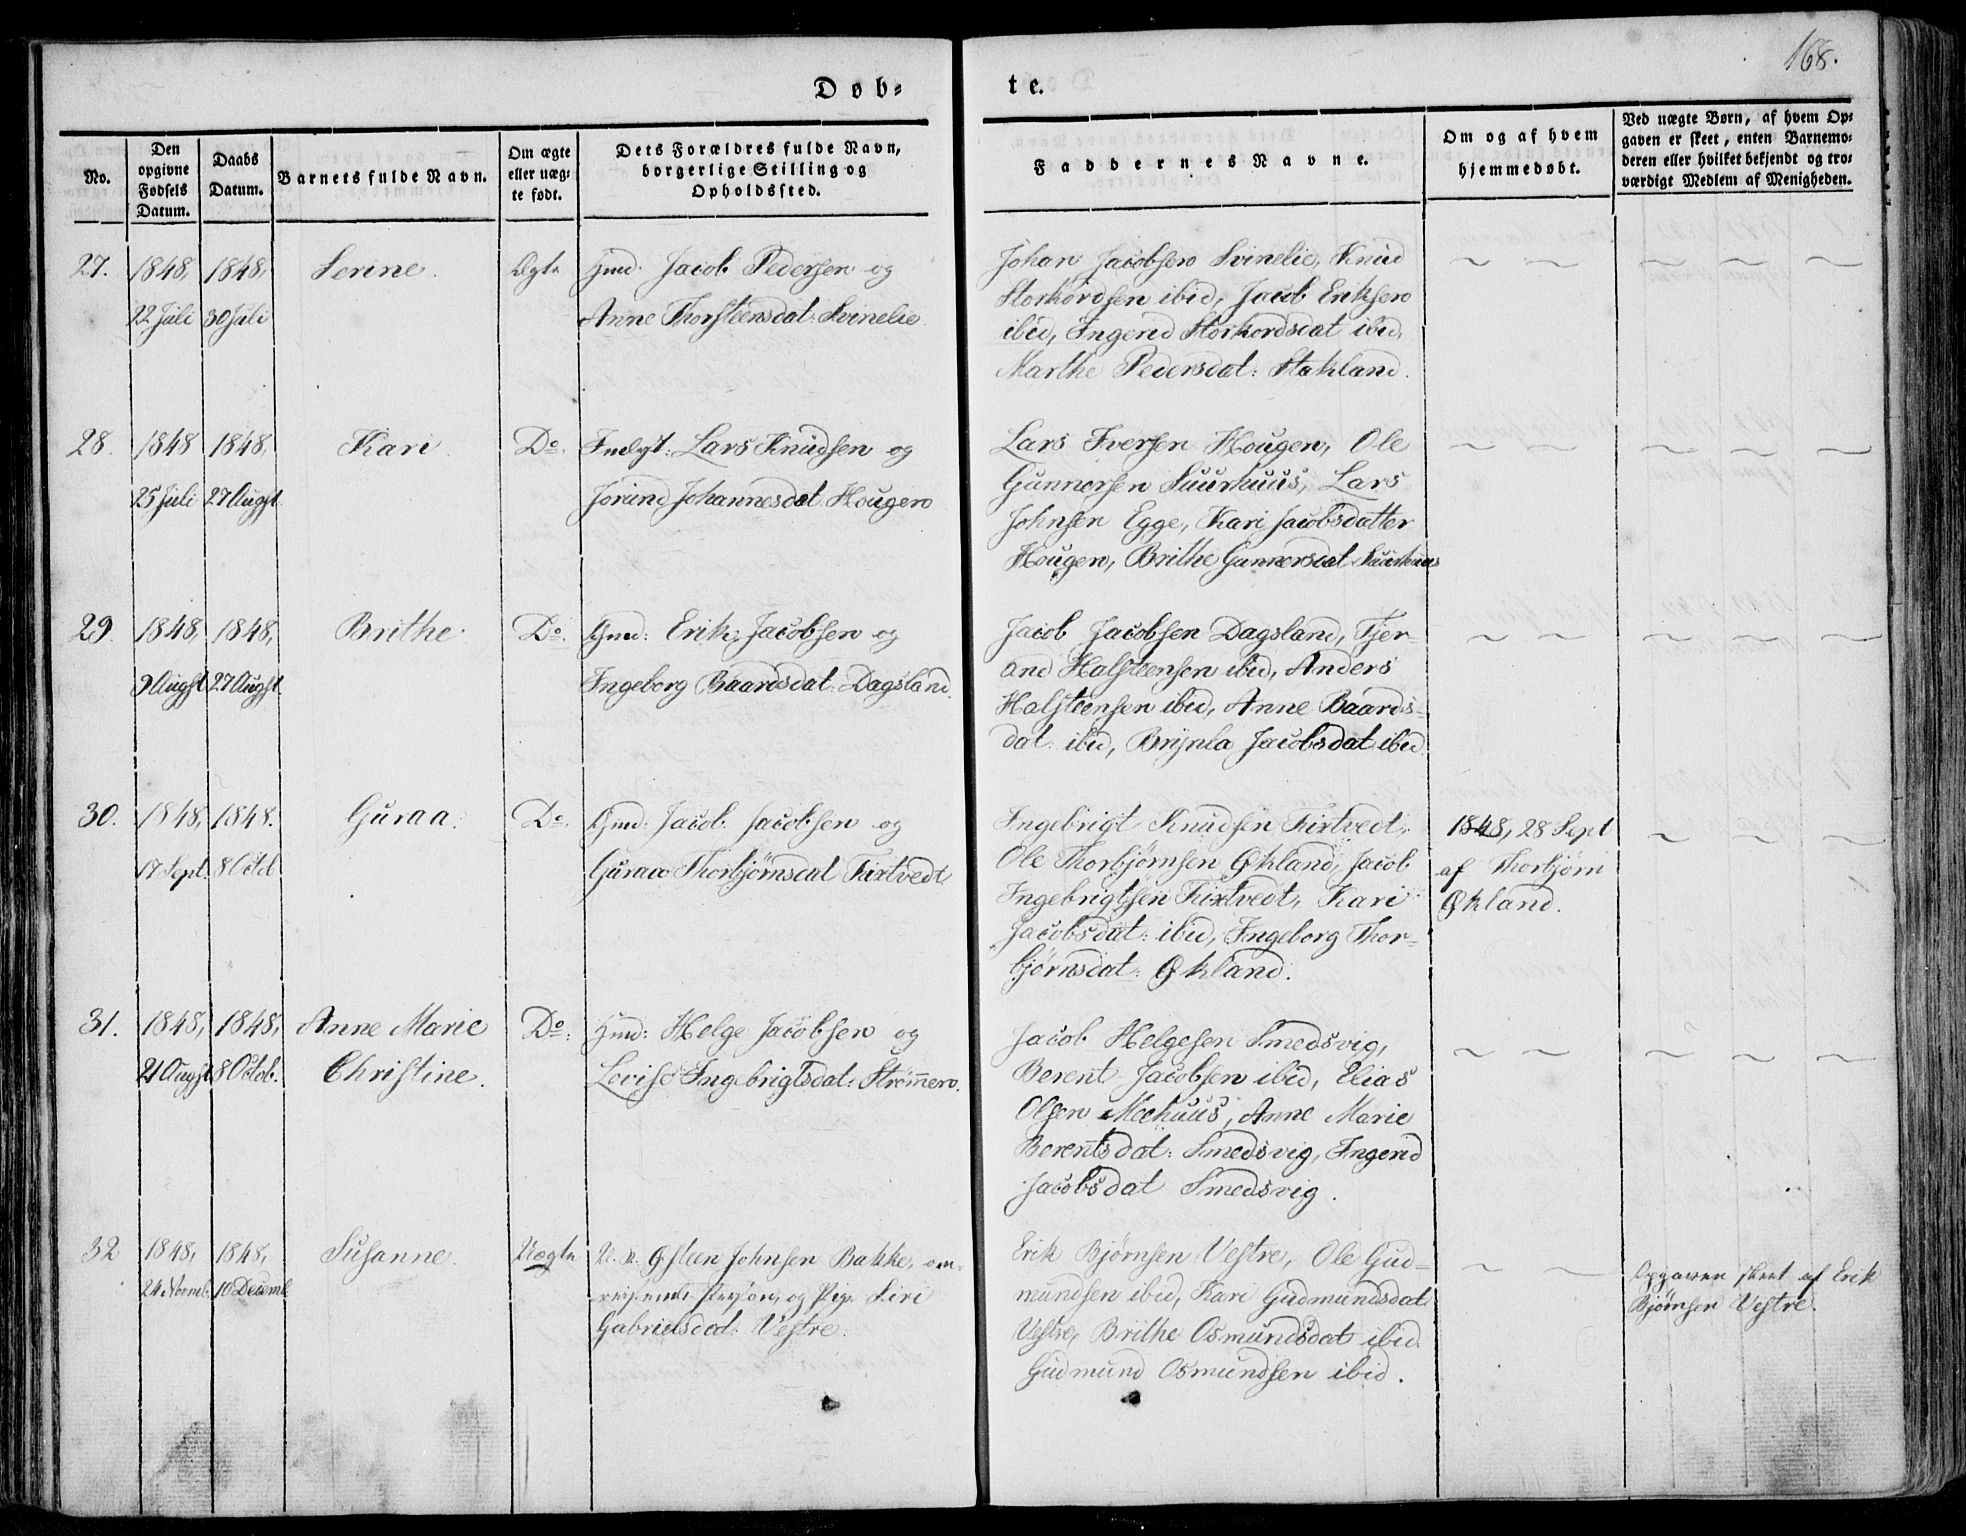 168.
Døb-
te.
No.
Den opgivne Fødsels Datum.
Daabs Datum.
Barnets fulde Navn.
Om ægte eller uæg-te født.
Dets Forældres fulde Navn, borgerlige Stilling og Opholdssted.
Faddernes Navne.
Om og af hvem hjemmedøbt.
Ved uægte Børn, af hvem Op-gaven er skeet, enten Barnemo-deren eller hvilket bekjendt og tro-værdigt Medlem af Menigheden.
27.
1848,
22 Juli
1848,
30 Juli
Serine.
Ægte
Hmd: Jacob Pedersen og
Anne Thorsteensdat: Svinelie
Johan Jacobsen Svinelie, Knud
Storkordsen ibid, Jacob Eriksen
ibid, Ingerid Storkordsdat ibid,
Marthe Pedersdat: Stakland.
28.
1848
25 Juli
1848,
27 Augst
Kari
Do.
Indst: Lars Knudsen og
Jorand Johannesdat: Hougen
Lars Iversen Hougen, Ole
Gunnersen Suurhuus, Lars
Johnsen Egge, Kari Jacobsdatter
Hougen, Brithe Gunnersdat Suurhuus
29.
1848,
9 Augst
1848,
27 Augst
Brithe
Do.
Gmd: Erik Jacobsen og
Ingeborg Baardsdat: Dagsland.
Jacob Jacobsen Dagsland, Tjer-
and Halsteensen ibid, Anders
Halsteensen ibid, Anne Baards-
dat: ibid, Brynla Jacobsdat ibid
30.
1848,
17 Sept.
1848.
8 Octob
Guraa.
Do.
Gmd: Jacob Jacobsen og
Guraa Thorbjørnsdat Tixtvedt.
Ingebrigt Knudsen Tixtvedt,
Ole Thorbjørnsen Økland, Jacob
Ingebrigtsen Tixtvedt, Kari
Jacobsdat: ibid, Ingeborg Thor-
bjørnsdat: Økland.
1848, 28 Sept
af Thorbjørn
Økland.
31.
1848,
21 Augst
1848,
8 Octob.
Anne Marie
Christine.
Do:
Hmd: Helge Jacobsen og
Lovise Ingebrigtsdat: Strømmen.
Jacob Helgesen Smedsvig,
Berent Jacobsen ibid, Elias
Olsen Meehuus, Anne Marie
Berentsdat: Smedsvig, Ingerid
Jacobsdat Smedsvig.
32
1848,
24 Novmb.
1848,
10 Decemb
Susanne.
Uægte
U. K. Østeen Johnsen Bakke, om-
reisende Person, og Pige Siri
Gabrielsdat: Vestre.
Erik Bjørnsen Vestre, Ole Gud-
mundsen ibid, Kari Gudmundsdat:
Vestre, Brithe Osmundsdat ibid.
Gudmund Osmundsen ibid.
Opgaven skeet af Erik
Bjørnsen Vestre.